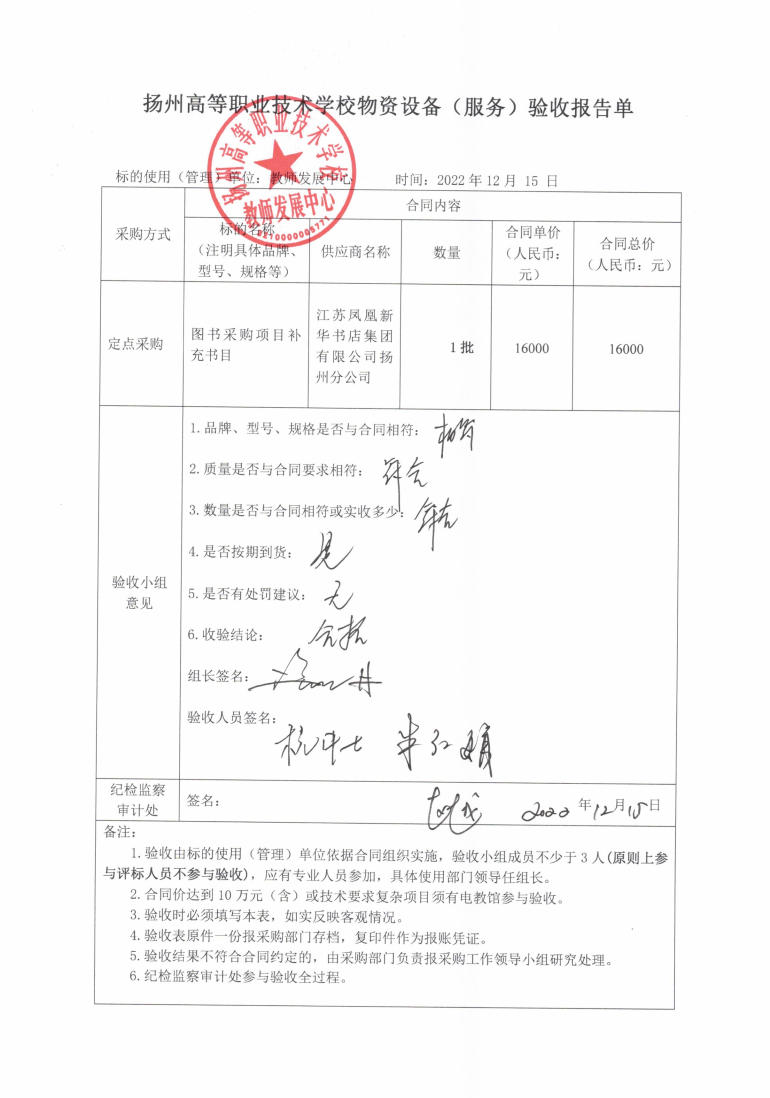 扬州高等职业技术学校物资设备（服务）验收报告单
扬州高等职业技术学校
教师发展中心
标的使用（管理）单位：教师发展中心 时间：2022 年 12 月 15 日
采购方式
合同内容
标的名称
（注明具体品牌、
型号、规格等）
供应商名称
数量
合同单价
（人民币：
元）
合同总价
（人民币：元）
定点采购
图书采购项目补
充书目
江苏凤凰新
华书店集团
有限公司扬
州分公司
1 批
16000
16000
验收小组
意见
1.品牌、型号、规格是否与合同相符：相符
2.质量是否与合同要求相符：符合
3.数量是否与合同相符或实收多少：符合
4.是否按期到货：是
5.是否有处罚建议：无
6.收验结论：合格
组长签名：
验收人员签名：
纪检监察
审计处
签名： 2022 年 12 月 15 日
备注：
1.验收由标的使用（管理）单位依据合同组织实施，验收小组成员不少于 3 人(原则上参
与评标人员不参与验收)，应有专业人员参加，具体使用部门领导任组长。
2.合同价达到 10 万元（含）或技术要求复杂项目须有电教馆参与验收。
3.验收时必须填写本表，如实反映客观情况。
4.验收表原件一份报采购部门存档，复印件作为报账凭证。
5.验收结果不符合合同约定的，由采购部门负责报采购工作领导小组研究处理。
6.纪检监察审计处参与验收全过程。